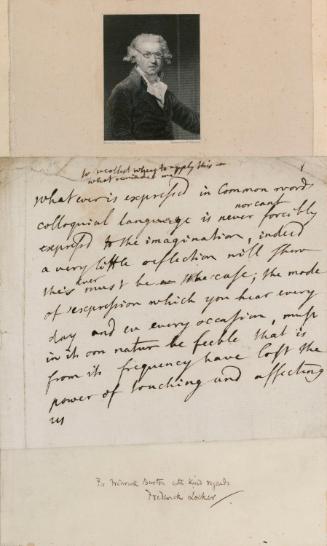 to recollect when to apply this
what reminded me
whatever is expressed in Common words
colloquial language is never forcibly
nor can
expressd to the imagination, indeed
a very little reflection will shew
ever
this must be the case; the mode
of expression which you hear every
day and on every occasion, must
in its own natur be feeble that is
from its frequency have lost the
power of touching and affecting
us
Fr Burton with kind regards
Frederick Locker